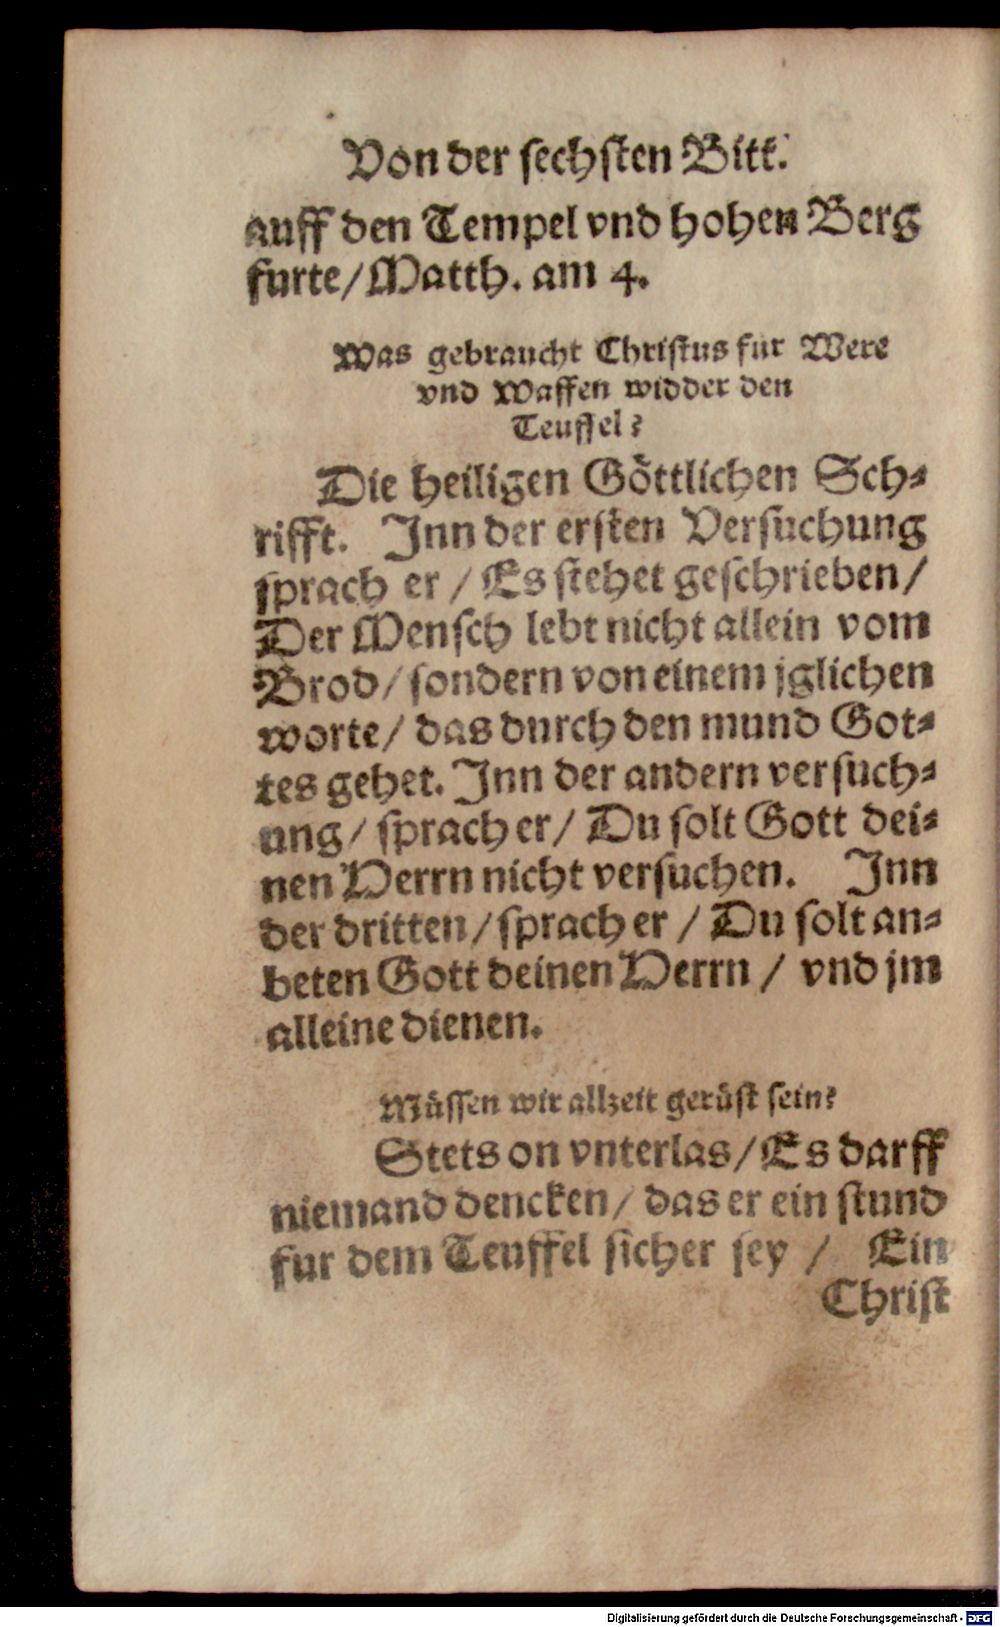 Von der sechsten Bitt.
auff den Tempel vnd hohen Berg
furte/ Matth. am 4.
Was gebraucht Christus fur Were
vnd Waffen widder den
Teuffel?
Die heiligen Göttlichen Sch-
rifft. Inn der ersten Versuchung
sprach er / Es stehet geschrieben/
Der Mensch lebt nicht allein vom
Brod/ sondern von einem jglichen
worte/ das durch den mund Got-
tes gehet. Inn der andern versuch-
ung/ sprach er/ Du solt Gott dei-
nen Herrn nicht versuchen. Inn
der dritten/ sprach er / Du solt an-
beten Gott deinen Herrn / vnd jm
alleine dienen.
Müssen wir allzeit gerüst sein?
Stets on vnterlas/ Es darff
niemand dencken/ das er ein stund
fur dem Teuffel sicher sey / Ein
Christ
Digitalisierung gefördert durch die Deutsche Forschungsgemeinschaft - DFG